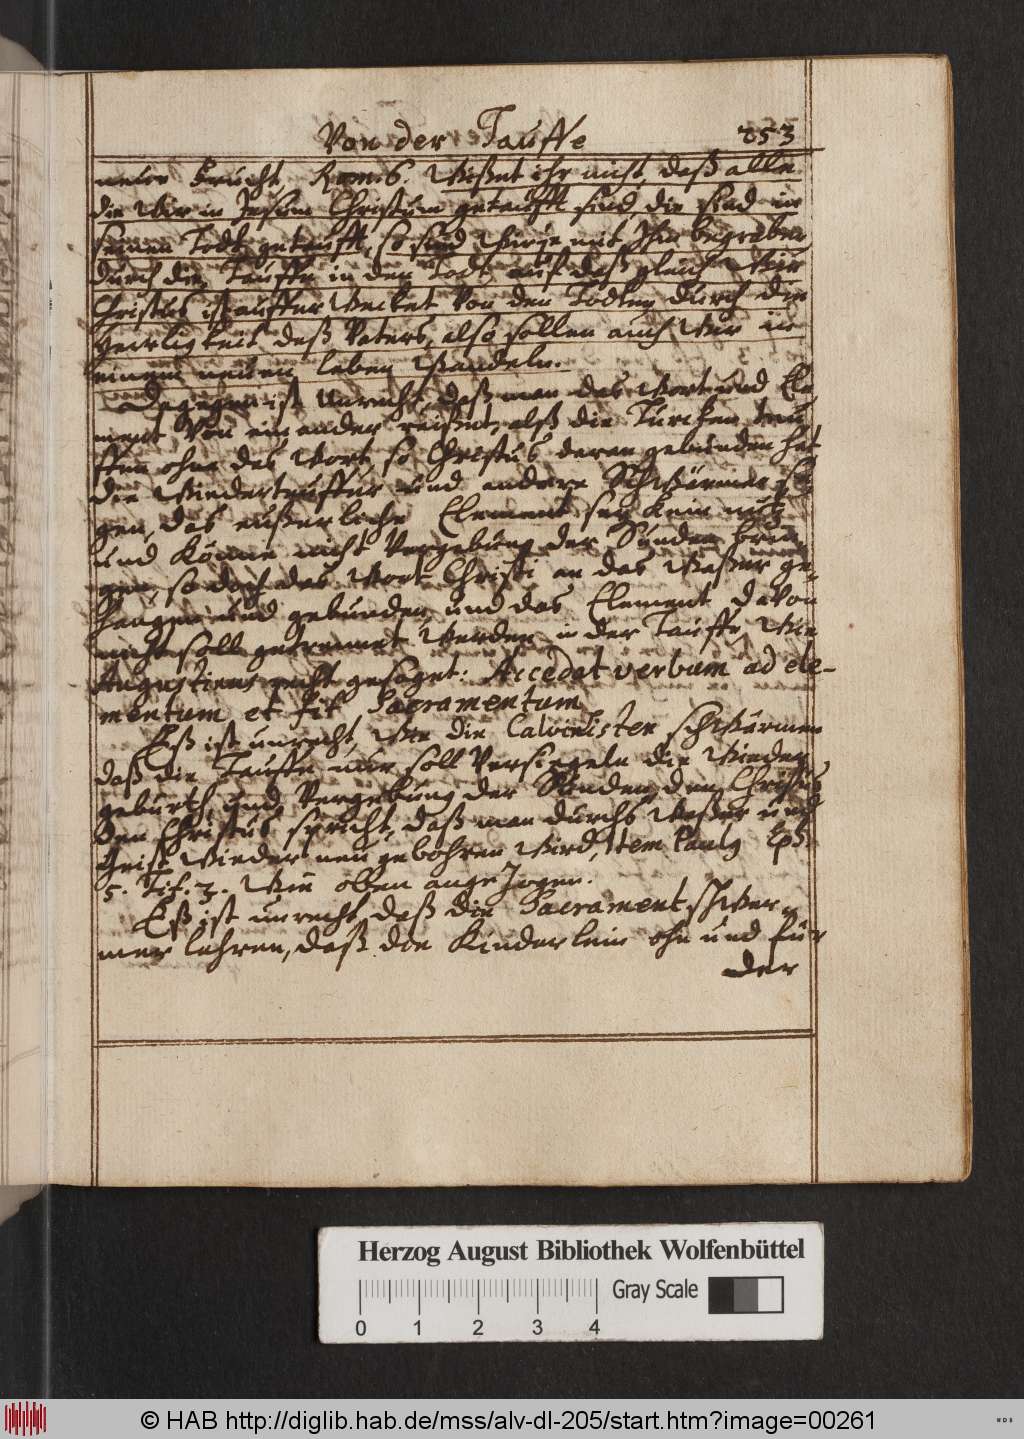 Von der Tauffe 253
neue frucht, Rom. 6. Wißet ihr nicht, daß alle
die Wir in Jesum Christum getaufft sind, die sind in
seinen Todt getaufft, so sind Wir je mit Ihm begraben
durch die Tauffe in den Todt, auf daß gleich Wie
Christus ist aufferWecket Von den Todten durch die
Herrligkeit deß Vaters, also sollen auch Wir in
einem neuen leben Wandeln.
Dagegen ist Unrecht, daß man das Wort und Ele
ment Von ein ander reißet, alß die Türcken tau
ffen ohne das Wort, so Christus daran gebunden hat
die Wiedertauffer und andere SchWärmer sa
gen, das eußerliche Element sey kein nutz
und Könne nicht Vergebung der Sünden brin
gen, so doch das Wort Christi an das Waßer ge-
hangen und gebunden, und das Element davon
nicht soll getrennet Werden in der Tauffe, Wie
Augustinus recht gesaget: Accedat verbum ad ele-
mentum et fit Sacramentum
Eß ist unrecht, Wie die Calvinisten schWärmen
daß die Tauffe nur soll Versiegeln die Wieder
geburth und Vergebung der Sünden, den Christus
den Christus spricht, daß man durchs Waßer und
Geist Wieder neu gebohren Wird, Item Paulg Eph.
5. Tit. 3. Wie oben angezogen.
Eß ist unrecht, daß die Sacrament schWer-
mer lehren, daß die Kinderlein ohn und für
der
Herzog August Bibliothek Wolfenbüttel
Gray Scale
0 1 2 3 4
© HAB http://diglib.hab.de/mss/alv-dl-205/start.htm?image=00261
WDB